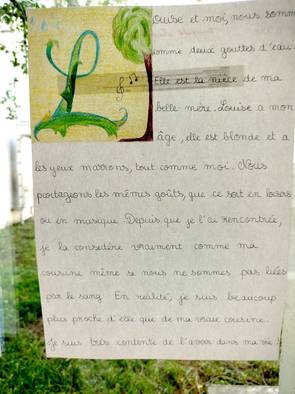 Louise et moi, nous somm
comme deux gouttes d'eau.
Elle est la nièce de ma
belle mère. Louise a mon
âge, elle est blonde et a
les yeux marrons, tout comme moi. Nous
partageons les mêmes goûts, que ce soit en loisirs
ou en musique. Depuis que je l'ai rencontrée,
je la considère vraiment comme ma
cousine même si nous ne sommes pas liées
par le sang. En réalité, je suis beaucoup
plus proche d'elle que de ma vraie cousine.
Je suis très contente de l'avoir dans ma vie !